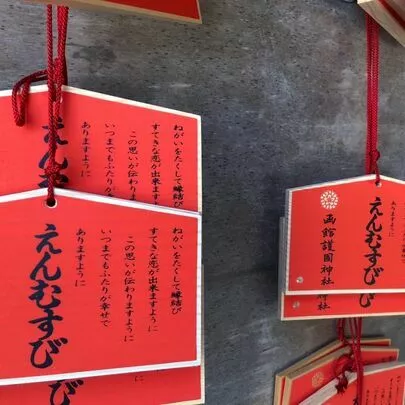 ねがいをたくして縁結び
すてきな恋が出来ます
この思いが伝わりま
いつまでもふたりが
ありますように
えん
ねがいをたくして縁結び
すてきな恋が出来ますように
この思いが伝わりますように
いつまでもふたりが幸せで
ありますように
えんむすび
ありますように
えんむすび
函館護國神社
び
神社